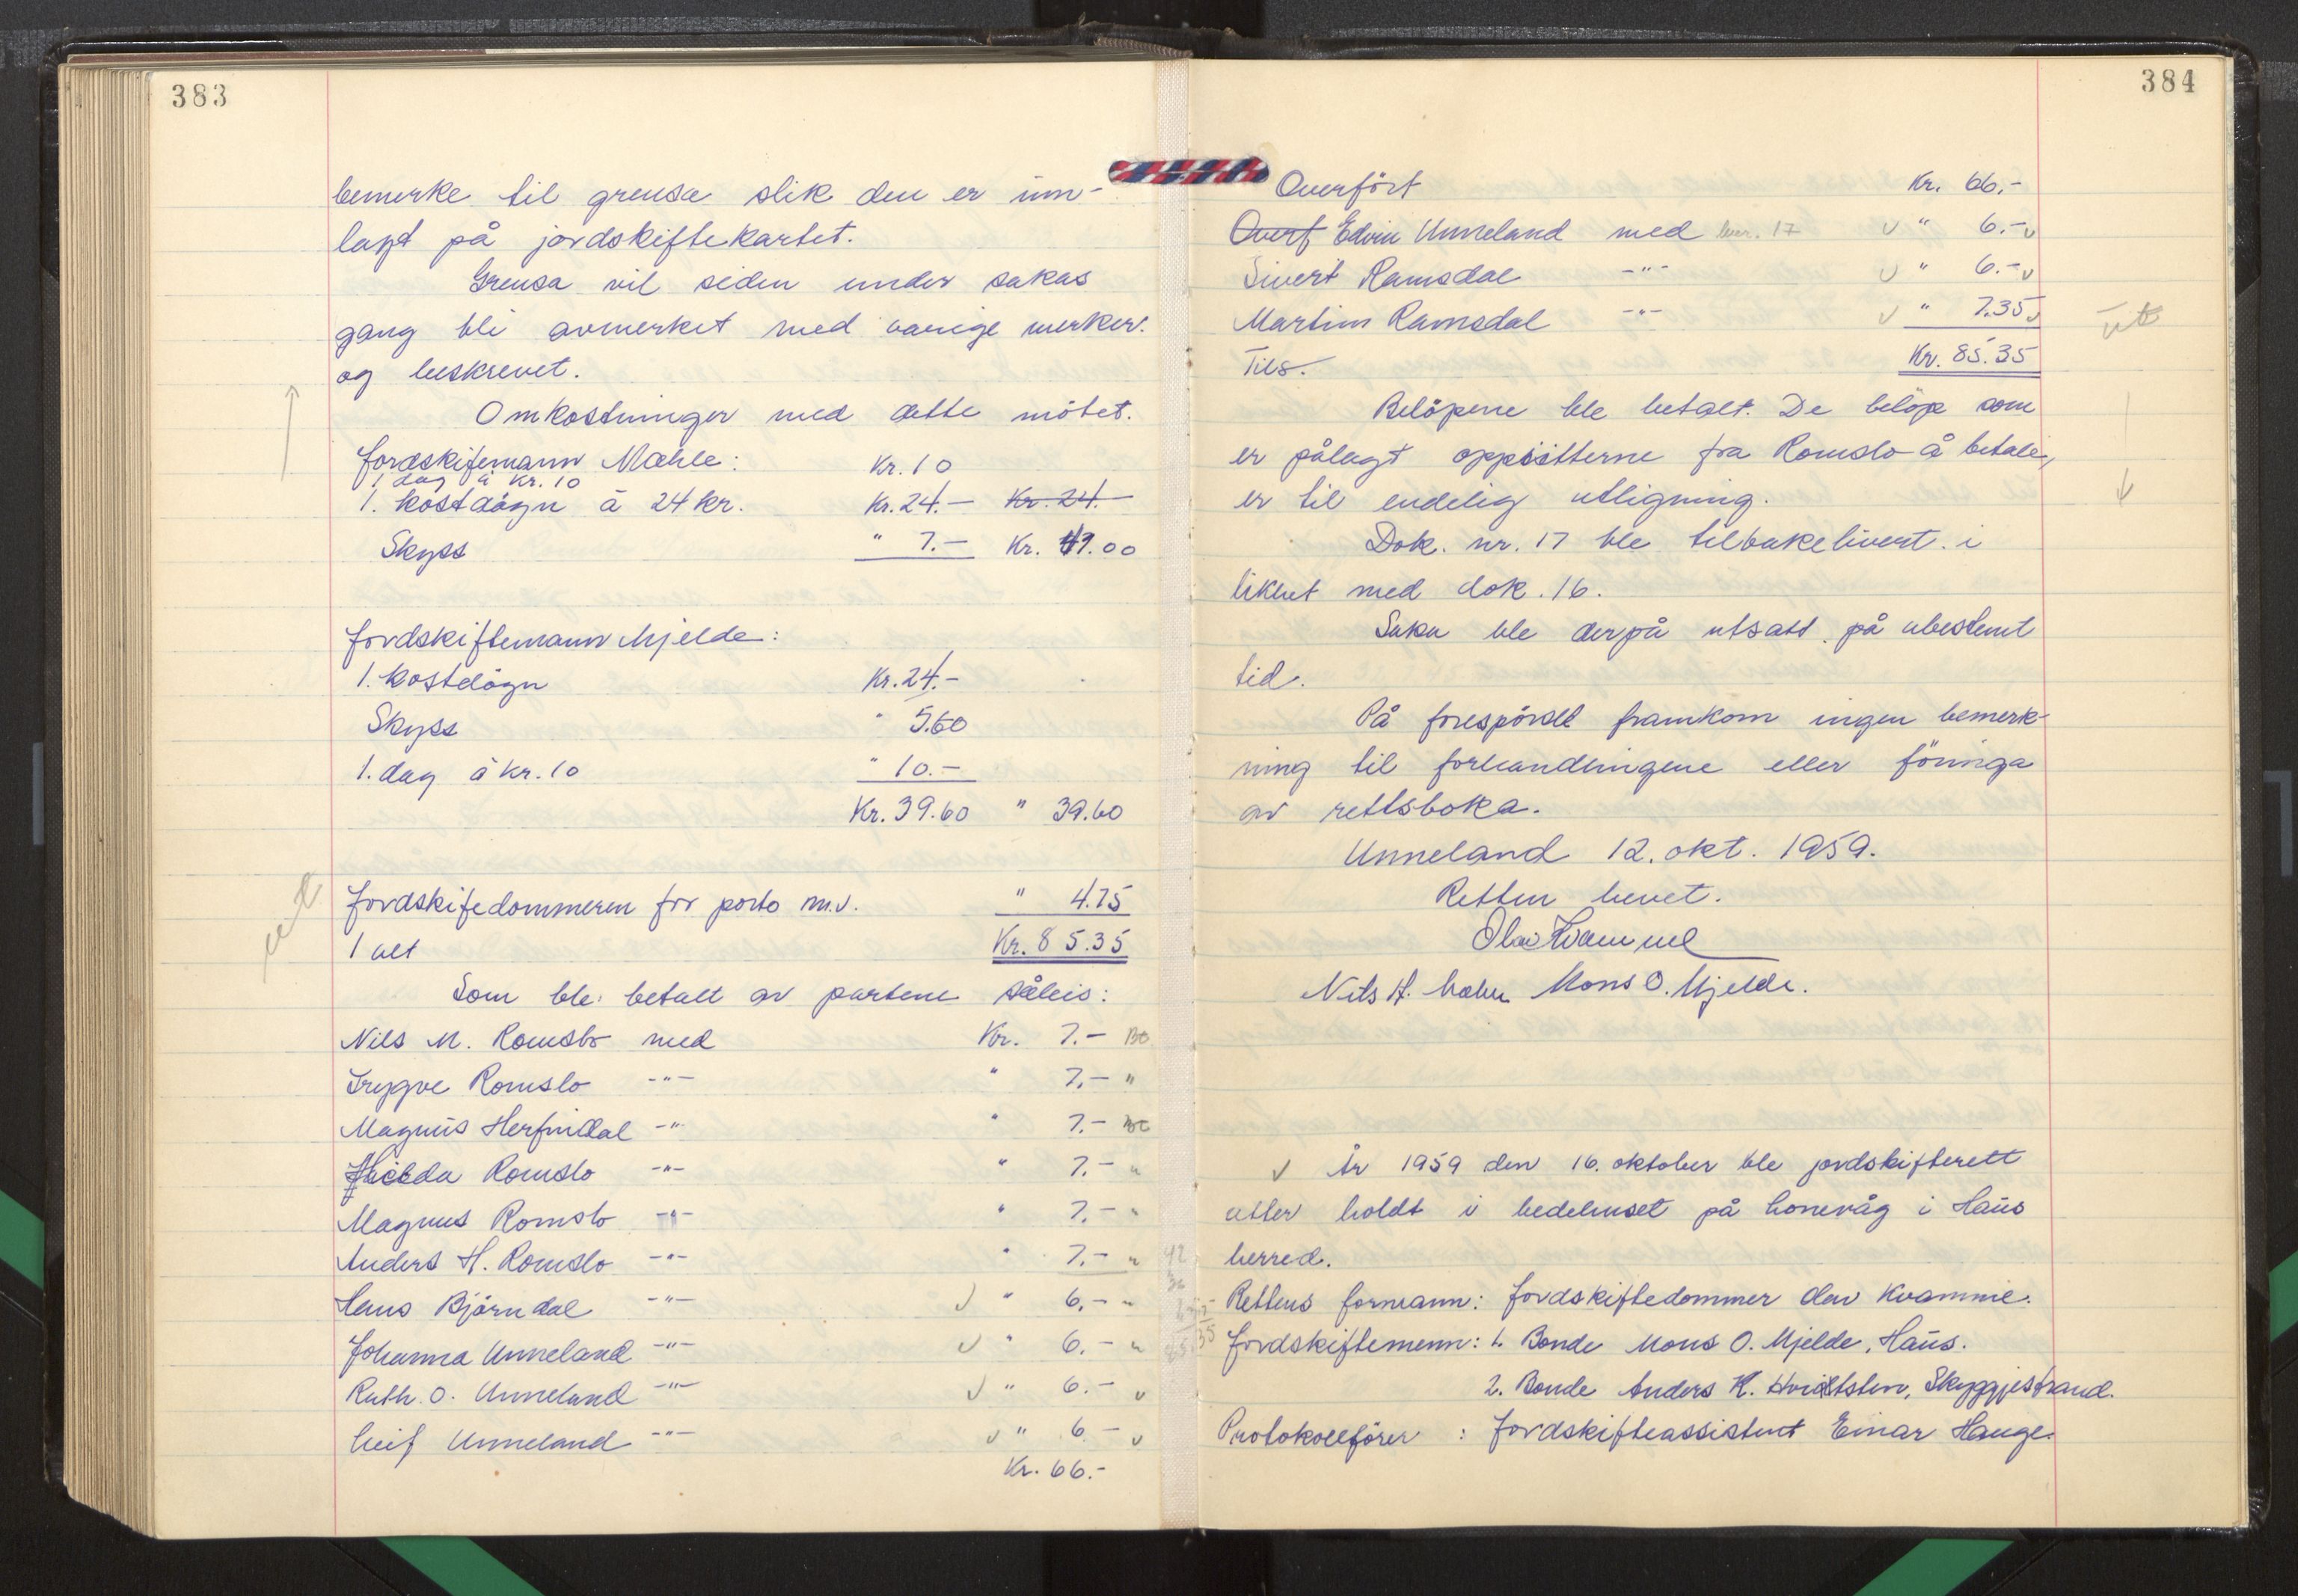 383
bemerke til grensa slik den er inn-
lagt på jordskiftekartet.
Grensa vil siden under sakas
gang bli avmerket med varige merker.
og beskrevet.
Omkostninger med dette mötet.
Jordskifemann Mæhle: Kr. 10
1 dag á kr. 10
1. kostdögn á 24 kr. Kr. 24.- Kr. 24.-
Skyss " 7.- Kr. 41.00
Jordskiftemann Mjelde:
1. kostdögn Kr. 24.-
Skyss " 5.60
1. dag á kr. 10 " 10.-
Kr. 39.60 " 39.60
Jordskifedommeren for porto m.v. " 4.75
I alt Kr. 85.35
Som ble betalt av partene såleis:
Nils M. Romslo med Kr. 7.- Bt
Trygve Romslo -"- " 7.- "
Magnus Herfindal -"- " 7.- Bt
Hilda Romslo -"- " 7.- "
Magnus Romslo -"- " 7.- "
Anders H. Romslo -"- " 7.- "
Hans Björndal -"- " 6.- "
Johanna Unneland -"- " 6.- "
Ruth. O. Unneland -"- " 6.-
Leif Unneland -"- " 6.-
Kr. 66.-
384
Overfört Kr. 66.-
Overf Edvin Unneland med " 6.-
Sivert Ramsdal -"- " 6.-
Martin Ramsdal -"- " 7.35
Tils. Kr. 85.35
ut
Belöpene ble betalt. De belöp som
er pålagt oppsitterne fra Romslo å betale,
er til endelig utligning.
Dok. nr. 17 ble tilbakelivert i
likhet med dok. 16.
Saka ble derpå utsatt på ubestemt
tid.
På forespördl framkom ingen bemerk-
ning til forhandlingene eller föringa
av rettsboka.
Unneland 12. okt. 1959.
Retten hevet.
Olav Kvamme
Nils H. Mæhle Mons O. Mjelde.
År 1959 den 16. oktober ble jordskifterett
atter holdt i bedehuset på Lonevåg i Haus
herred.
Rettens formann: Jordskiftedommer Olav Kvamme.
Jordskiftemenn: 1. Bonde Mons O. Mjelde, Haus.
2. Bonde Anders K. Hvidtsten, Skyggjestrand.
Protokollförer : Jordskifteassistent Einar Hauge.